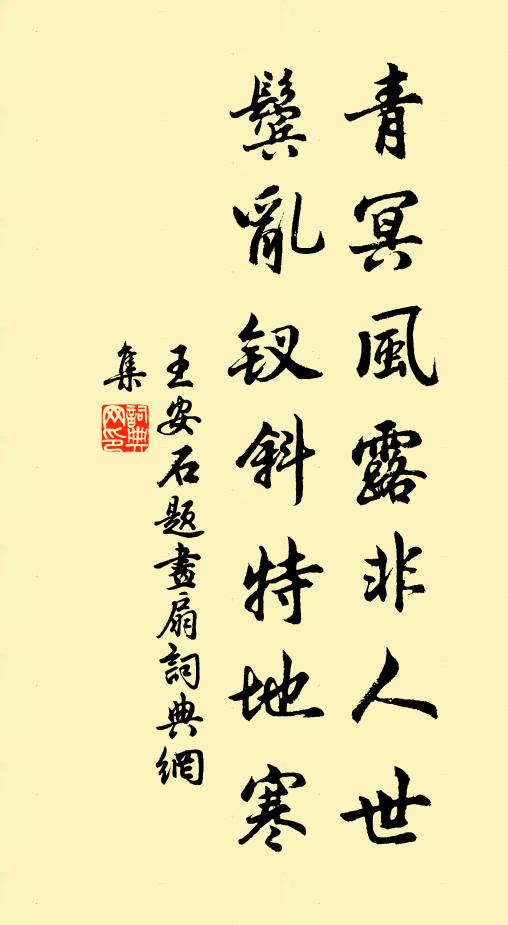 青冥風露非人世
鬢亂釵斜特地寒
王安石題畫扇詞典網
集
詞典
网印